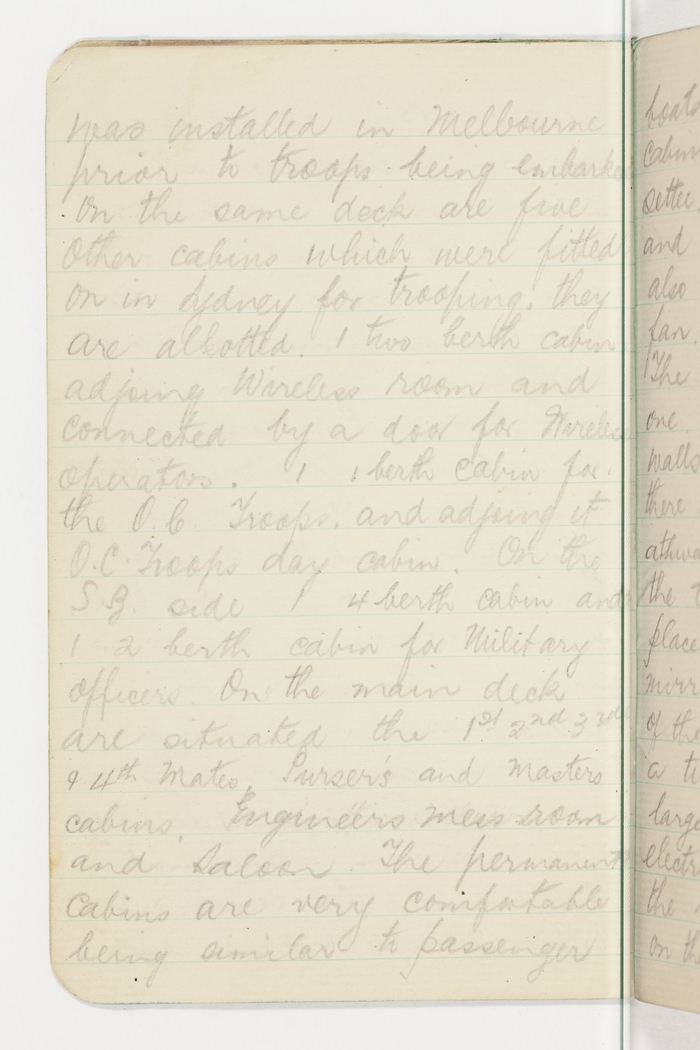 was installed in Melbourne
prior to troops being embarked
On the same deck are five
other cabins which were fitted
on in Sydney for trooping. they
are allotted. 1 two berth cabin
adjoing Wireless room and
connected by a door for Wireless
operators. 1 1 berth cabin for
the O.C. Troops. and adjoing it
O.C. Troops day cabin. On the
S.B. side 1 4 berth cabin and
1 2 berth cabin for Military
officers. On the main deck
are situated the 1st 2nd 3rd
& 4th Mates, Purser's and Masters
cabins. Engineers mess room
and Saloon. The permanent
cabins are very comfortable
being similar to passenger
boats
cabin
settee
and
also
fan.
The
one
walls
there
the
place
mirr
of the
a
large
electr
the
on th